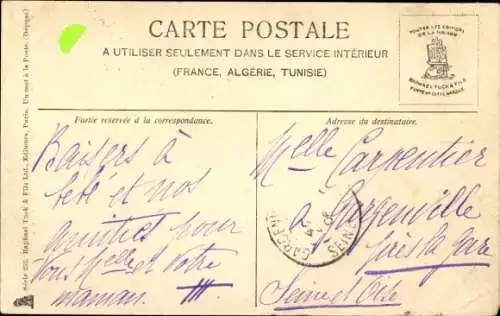 CARTE POSTALE
A UTILISER SEULEMENT DANS LE SERVICE INTÉRIEUR
(FRANCE, ALGÉRIE, TUNISIE)
TOUTES LES EDITIONS
DE LA MAISON
RAPHAEL TUCK & FILS
PORTENT CETTE MARQUE
Série 235. Raphael Tuck & Fils Ltd., Editeurs, Paris. Un mot à la Poste. (Dépose)
Partie reservée à la correspondance.
Baisers à
bébé et nos
amitiés pour
vous Melle et votre
maman.
Adresse du destinataire.
Melle Carpentier
à Gargenville
près la gare
Seine et Oise
GARGENV